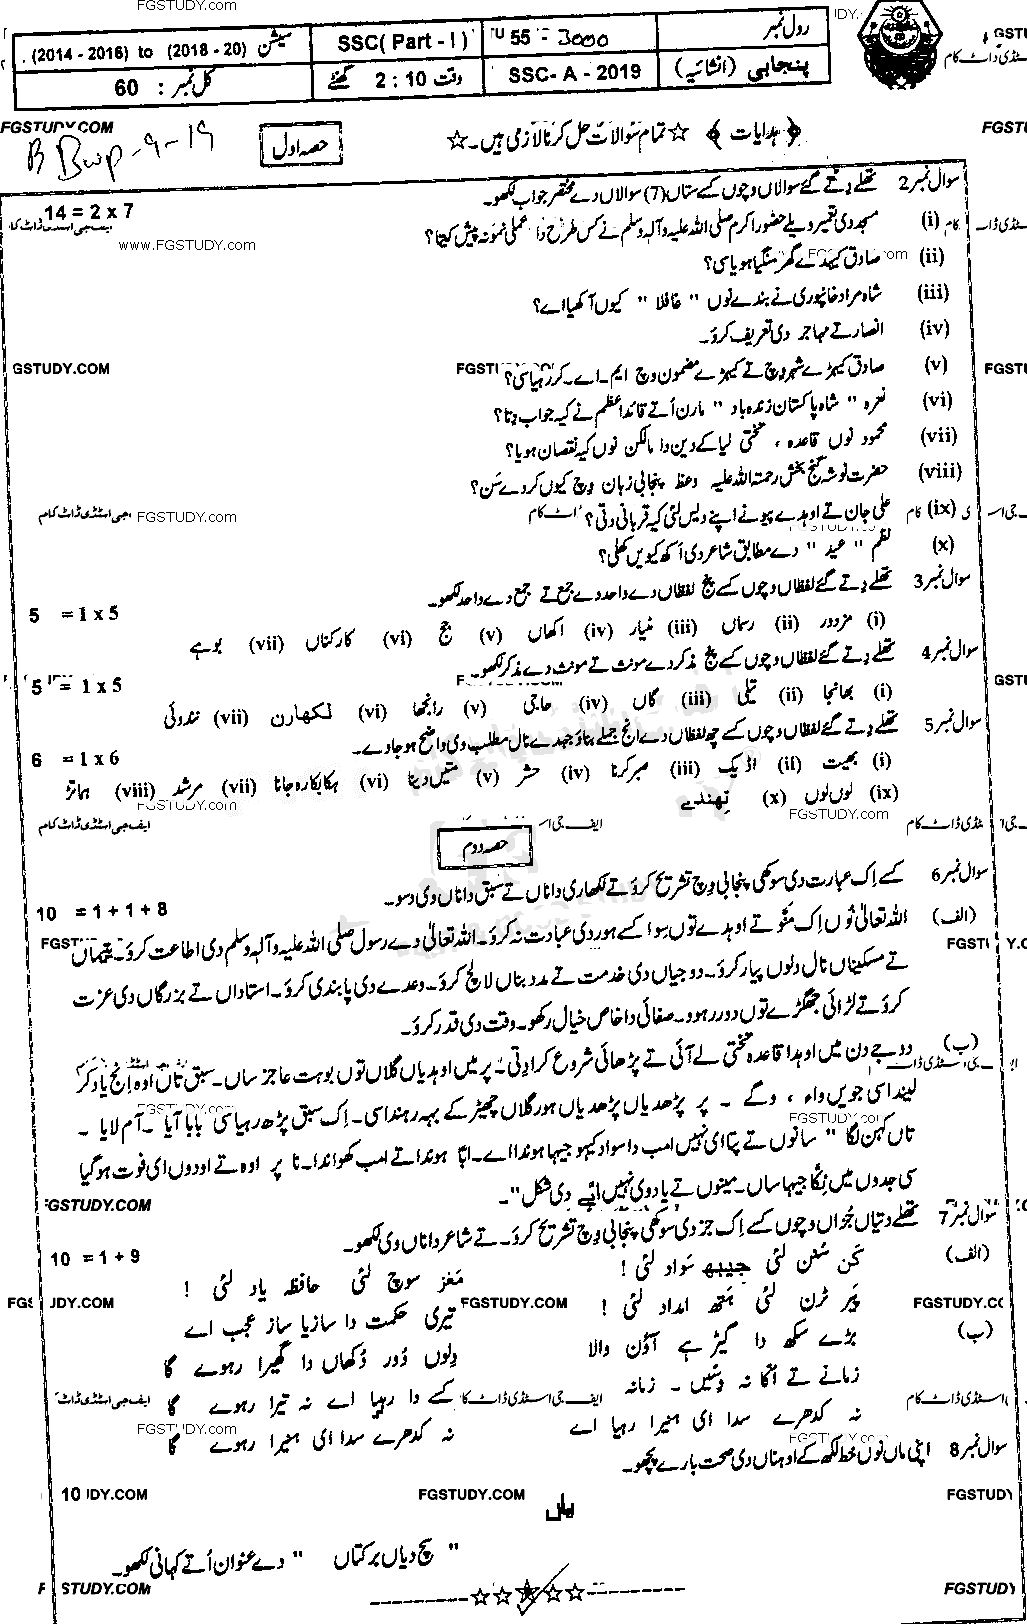 FGSTUDY.COM
رول نمبر
3000 - 55
SSC( Part - I )
سیشن (20 - 2018) to (2016 - 2014)
پنجابی (انشائیہ)
SSC- A - 2019
وقت 10 : 2 گھنٹے
کل نمبر : 60
FGSTUDY.COM
ہدایات ☆ تمام سوالات حل کرنا لازمی ہیں۔ ☆
حصہ اول
B Bwp-9-19
سوال نمبر 2 تھلے دِتے گئے سوالاں وچوں کے ستاں (7) سوالاں دے مختصر جواب لکھو۔
14 = 2 x 7
(i) مسجد دی تعمیر ویلے حضور اکرم صلی اللہ علیہ وآلہٖ وسلم نے کس طرح دا عملی نمونہ پیش کیتا؟
www.FGSTUDY.com
(ii) صادق کیہدے گھر منگیا ہویا سی؟
(iii) شاہ مراد خانپوری نے بندے نوں " غافلا " کیوں آکھیا اے؟
(iv) انصار تے مہاجر دی تعریف کرو۔
(v) صادق کیہڑے شہر وچ تے کیہڑے مضمون وچ ایم۔اے۔ کر رہیا سی؟
GSTUDY.COM
(vi) نعرہ " شاہ پاکستان زندہ باد " مارن اُتے قائداعظم نے کیہ جواب دِتا؟
(vii) محمود نوں قاعدہ ، تختی لیا کے دین دا مالکن نوں کیہ نقصان ہویا؟
(viii) حضرت نوشہ گنج بخش رحمتہ اللہ علیہ وعظ پنجابی زبان وچ کیوں کردے سَن؟
(ix) علی جان تے اوہدے پیو نے اپنے دیس لئی کیہ قربانی دتی؟
FGSTUDY.com
(x) نظم " عید " دے مطابق شاعر دی اَکھ کیویں کھلی؟
سوال نمبر 3 تھلے دِتے گئے لفظاں وچوں کے پنج لفظاں دے واحد دے جمع تے جمع دے واحد لکھو۔
5 = 1 x 5
(i) مزدور (ii) رسماں (iii) مٹیار (iv) اکھاں (v) جج (vi) کارکناں (vii) بوہے
سوال نمبر 4 تھلے دِتے گئے لفظاں وچوں کے پنج مذکر دے مونث تے مونث دے مذکر لکھو۔
5 = 1 x 5
(i) بھانجا (ii) تیلی (iii) گاں (iv) حاجی (v) رانجھا (vi) لکھارن (vii) نندوئی
سوال نمبر 5 تھلے دِتے گئے لفظاں وچوں کے چھ لفظاں دے انج جملے بناؤ جہدے نال مطلب وی واضح ہو جاوے۔
6 = 1 x 6
(i) بھیت (ii) اڈیک (iii) صبر کرنا (iv) حشر (v) متیں دینا (vi) ہکا بکا رہ جانا (vii) مرشد (viii) ہماتڑ
(ix) لوں لوں (x) تھندے
FGSTUDY.COM
حصہ دوم
سوال نمبر 6 کسے اِک عبارت دی سوکھی پنجابی وچ تشریح کرو تے لکھاری داناں تے سبق داناں وی دسو۔
10 = 1 + 1 + 8
(الف) اللہ تعالیٰ نُوں اِک منّو تے اوہدے توں سِوا کسے ہور دی عبادت نہ کرو۔ اللہ تعالیٰ دے رسول صلی اللہ علیہ وآلہٖ وسلم دی اطاعت کرو۔ یتیماں
تے مسکیناں نال دلوں پیار کرو۔ دوجیاں دی خدمت تے مدد بناں لالچ کرو۔ وعدے دی پابندی کرو۔ استاداں تے بزرگاں دی عزت
کرو تے لڑائی جھگڑے توں دور رہوو۔ صفائی دا خاص خیال رکھو۔ وقت دی قدر کرو۔
(ب) دوجے دن میں اوہدا قاعدہ تختی لے آئی تے پڑھائی شروع کرا دِتی۔ پر میں اوہدیاں گلاں توں بوہت عاجز ساں۔ سبق تاں اوہ اِنج یاد کر
لیندا سی جویں واء ، وگے ۔ پر پڑھدیاں پڑھدیاں ہور گلاں چھیڑ کے بہہ رہندا سی۔ اِک سبق پڑھ رہیا سی بابا آیا ۔ آم لایا ۔
تاں کہن لگا " سانوں تے پتا ای نہیں امب دا سواد کیہو جیہا ہوندا اے۔ ابّا ہوندا تے امب کھواندا۔ نا پر اوہ تے اودوں ای فوت ہو گیا
سی جدوں میں نِکا جیہا ساں۔ مینوں تے یاد وی نہیں ابّے دی شکل"۔
سوال نمبر 7 تھلے دتیاں جُزاں وچوں کسے اِک جز دی سوکھی پنجابی وچ تشریح کرو۔ تے شاعر داناں وی لکھو۔
10 = 1 + 9
(الف) کَن سُنن لئی جیبھ سَواد لئی ! مَغز سوچ لئی حافظہ یاد لئی !
پَیر ٹرن لئی ہَتھ امداد لئی ! تیری حکمت دا سازیا ساز عجب اے
(ب) بڑے سکھ دا گیڑ ہے آوَن والا دِلوں دُور دُکھاں دا گھیرا رہوے گا
زمانے تے اُکا نہ دِسّیں ۔ زمانہ کسے دا رہیا اے نہ تیرا رہوے گا
نہ کدھرے سدا ای ہنیرا رہیا اے نہ کدھرے سدا ای ہنیرا رہوے گا
سوال نمبر 8 اپنی ماں نوں خط لکھ کے اوہناں دی صحت بارے پچھو۔
10
FGSTUDY.COM
یاں
" سچ دیاں برکتاں " دے عنوان اُتے کہانی لکھو۔
STUDY.COM
FGSTUDY
☆☆★☆☆